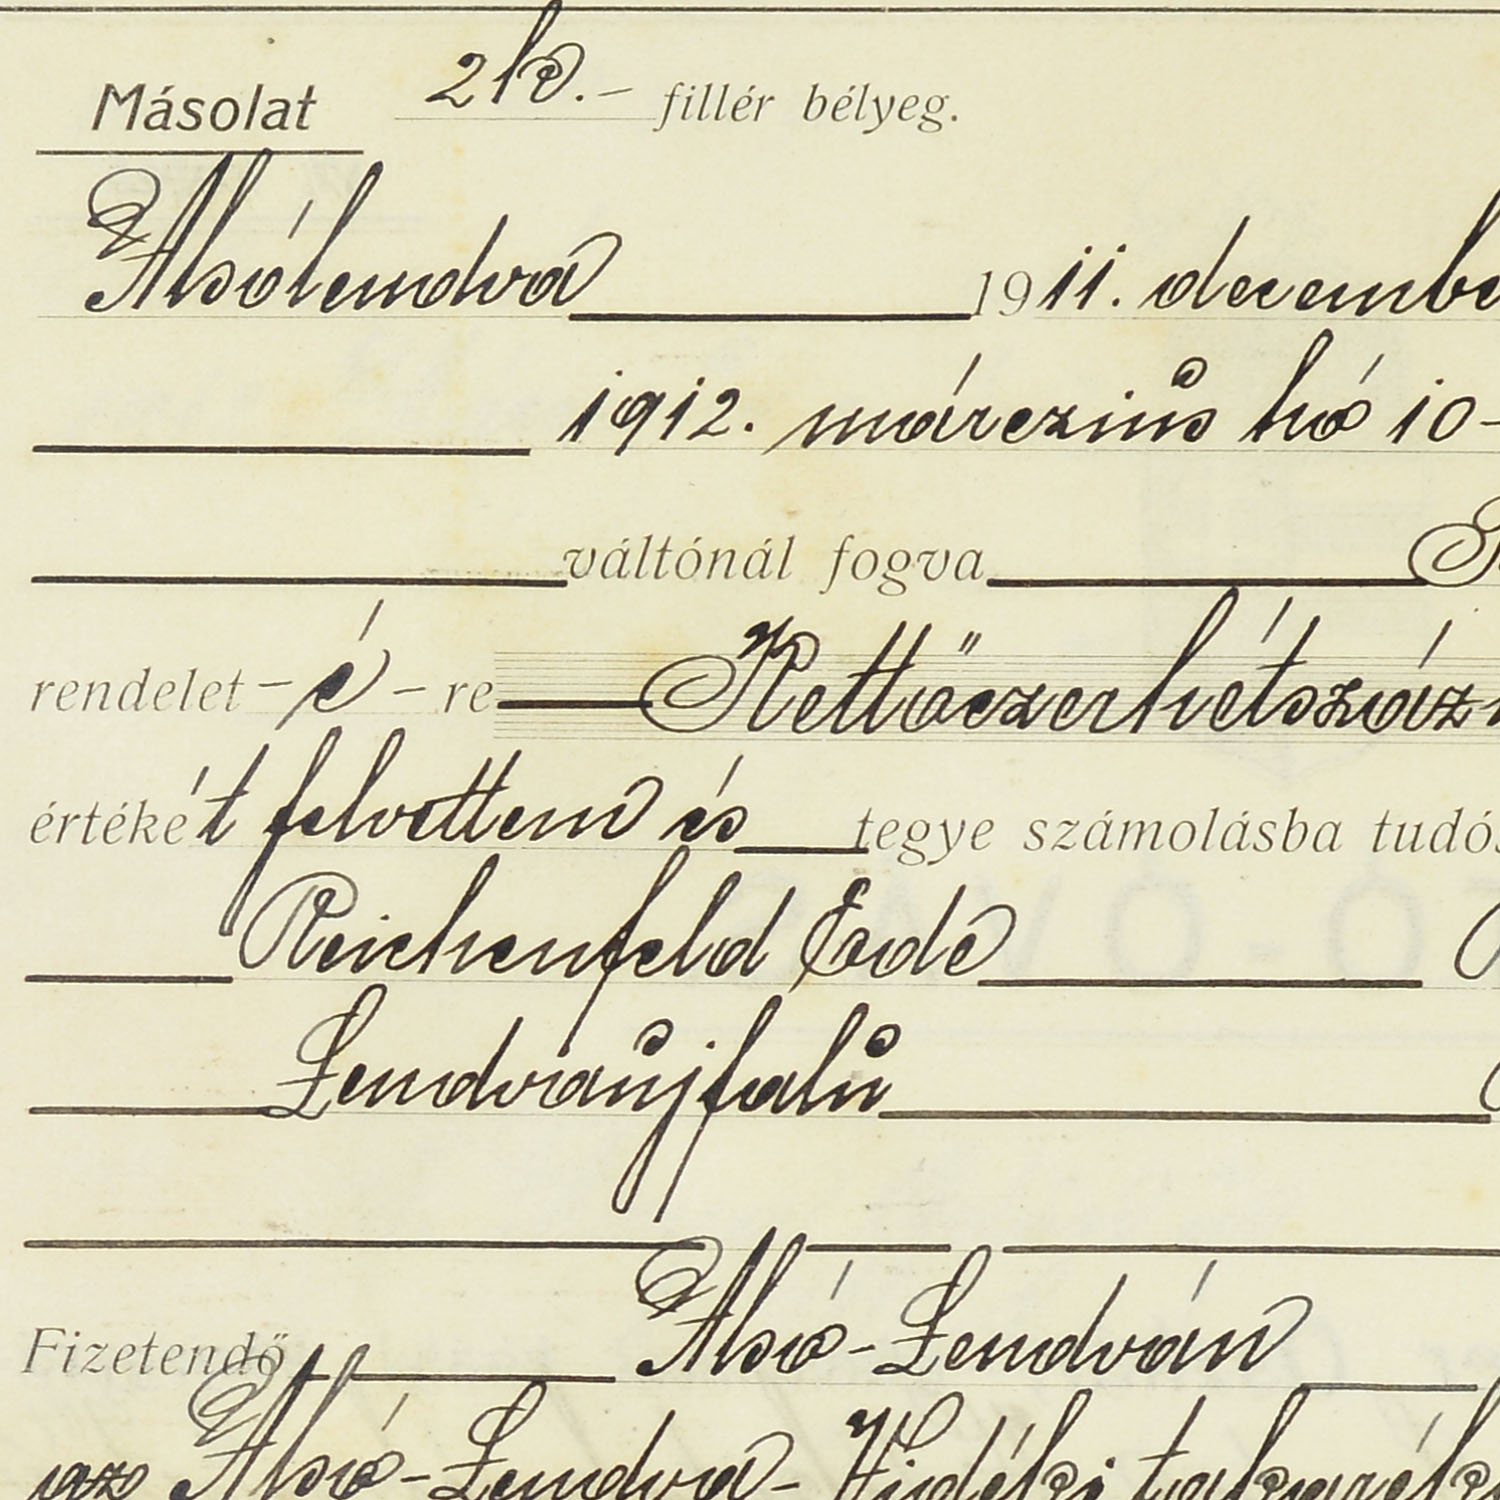 Másolat 2 K.- fillér bélyeg.
Alsólendva 1911. decembe
1912. márczius hó 10-
váltónál fogva
rendelet - é - re Kettőezerhétszáz
értékét felvettem és tegye számolásba tudós
Reichenfeld Ede
Lendvaújfalu
Fizetendő Alsó-Lendván
az Alsó-Lendva-Vidéki takarék